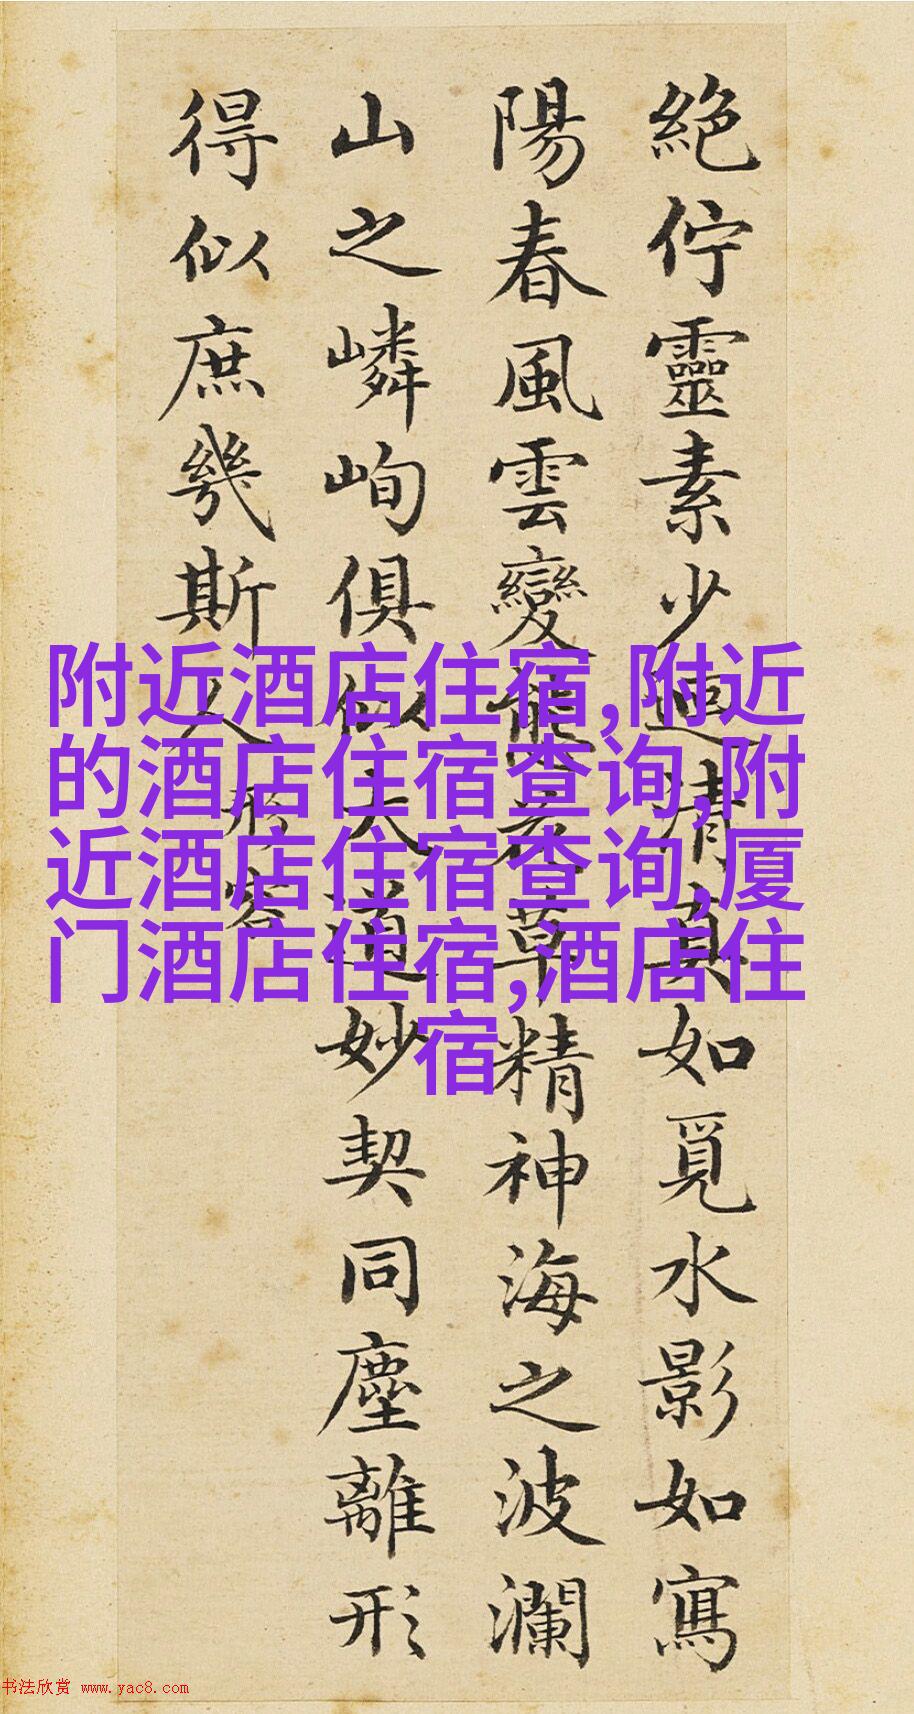 絶佇靈素少迴清真如覓水影如寫
陽春風雲變態花草精神海之波瀾
山之嶙峋俱似大道妙契同塵離形
得似庶幾斯人
形容
附近酒店住宿,附近
的酒店住宿查询,附
近酒店住宿查询,厦
门酒店住宿,酒店住
宿
书法欣赏 www.yac8.com